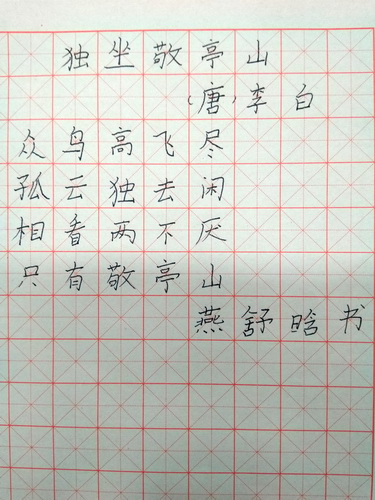 独坐敬亭山
(唐)李白
众鸟高飞尽
孤云独去闲
相看两不厌
只有敬亭山
燕舒晗书